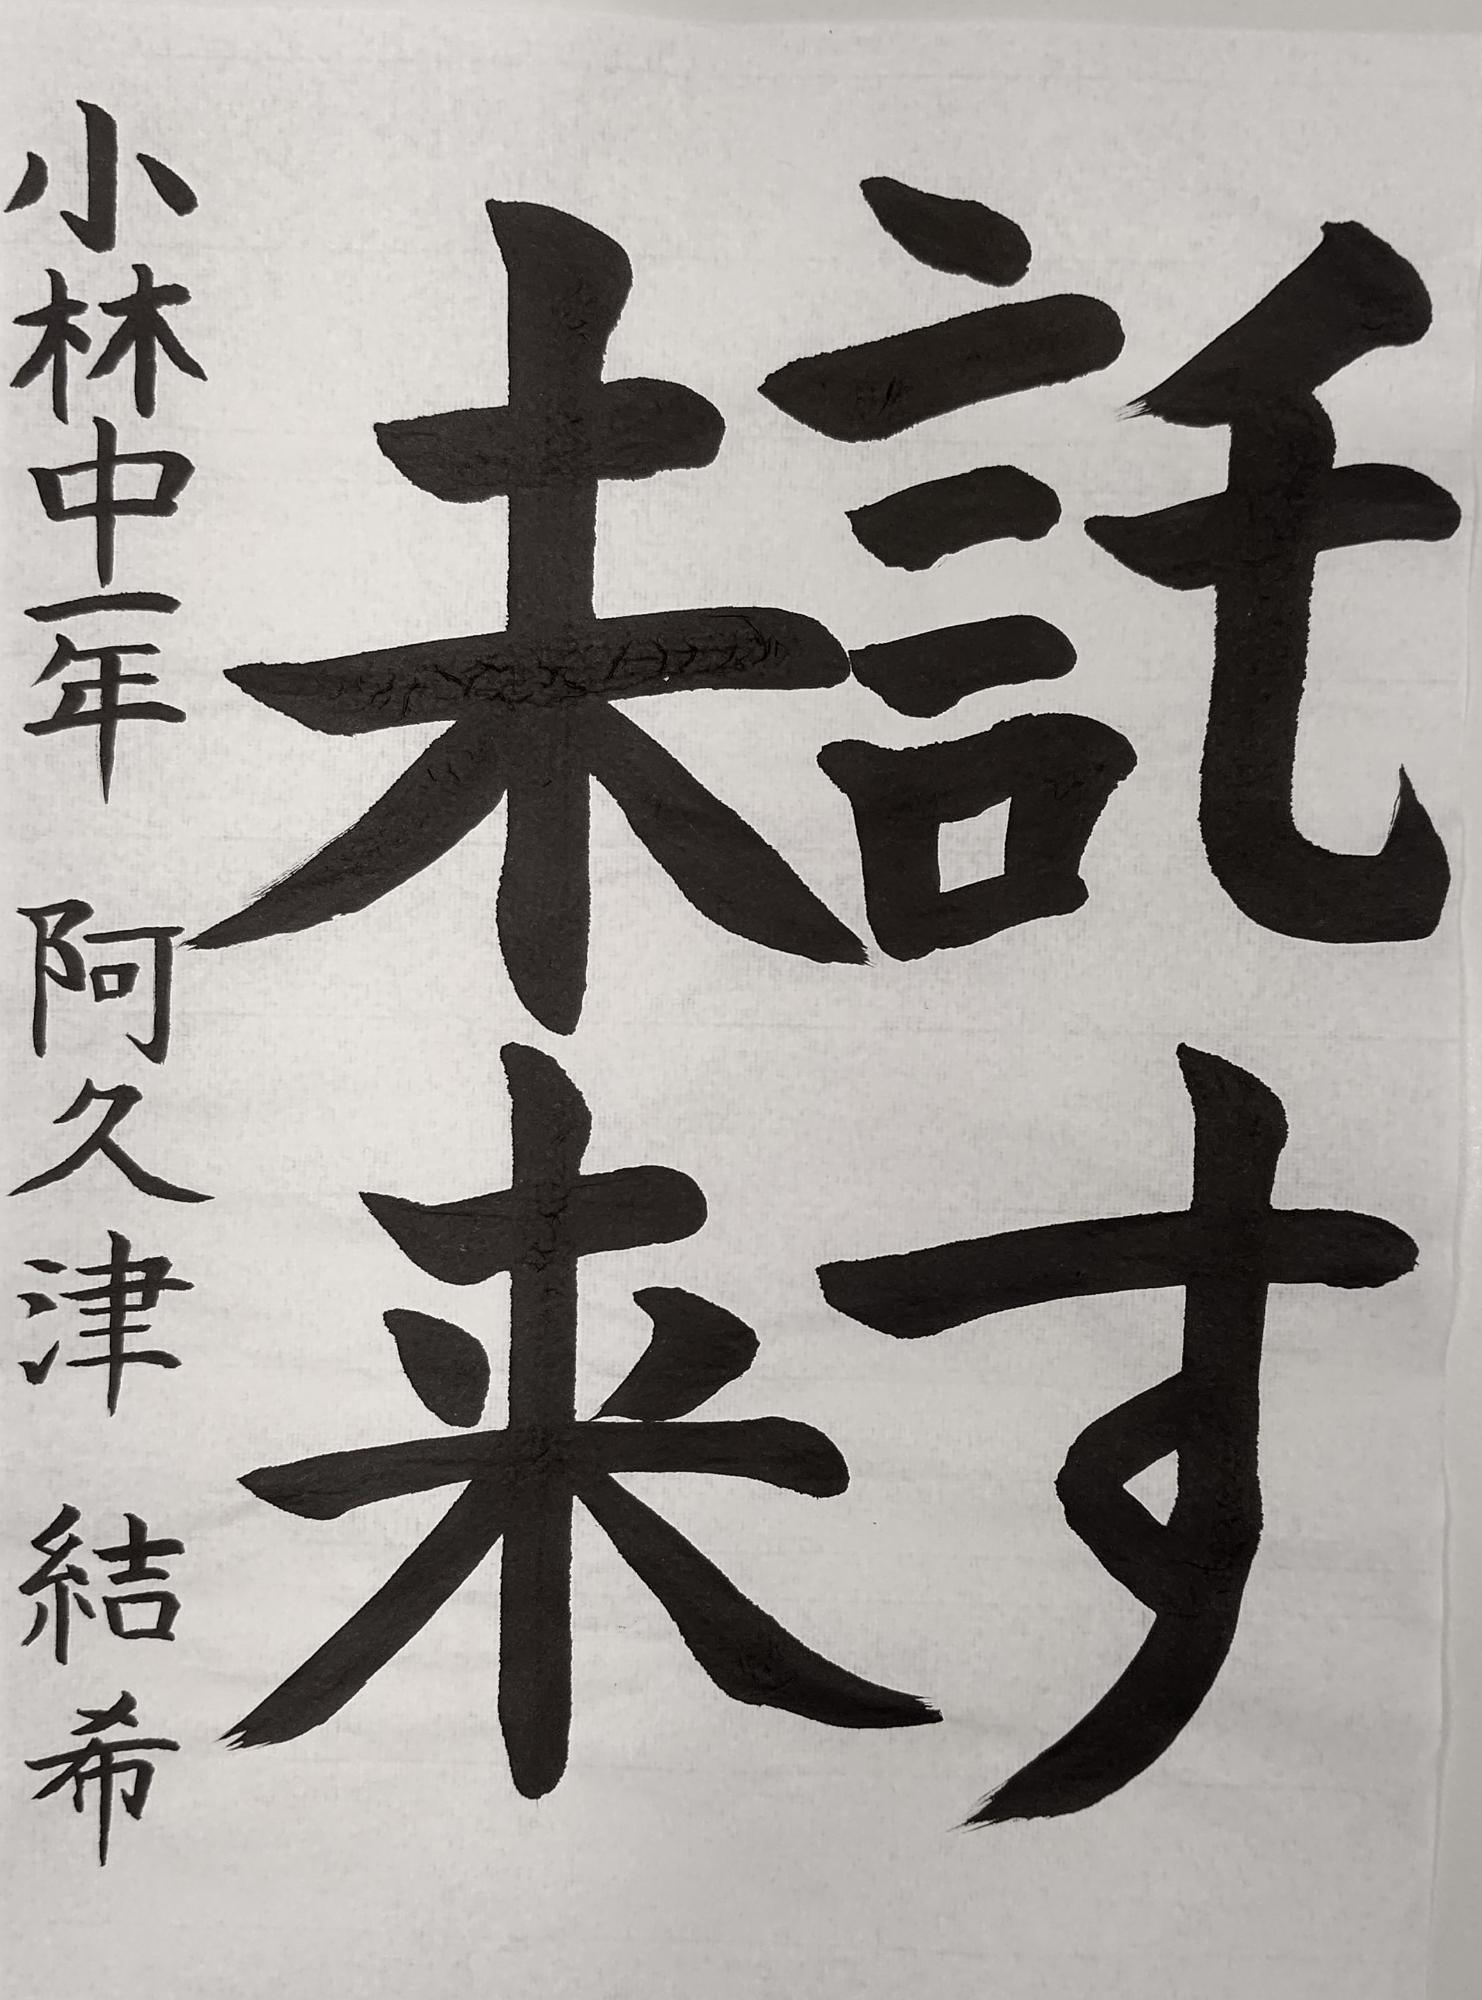 託す
未来
小林中一年 阿久津 結希